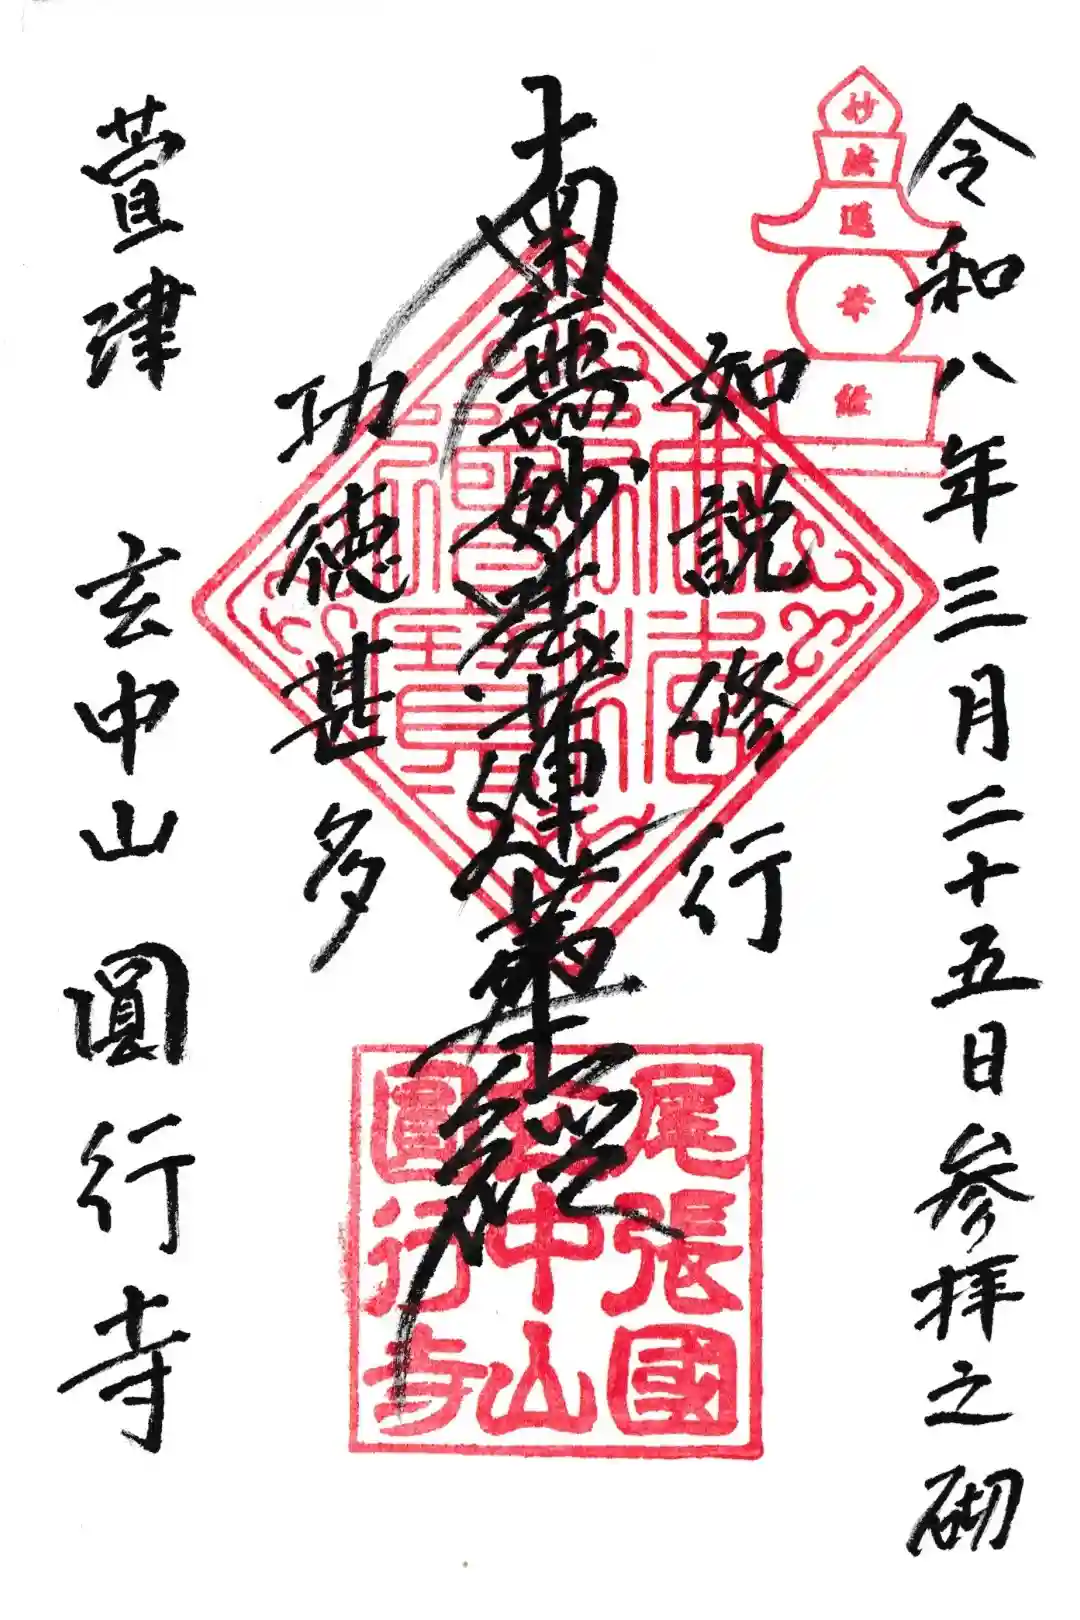 令和八年三月二十五日参拝之砌
妙法蓮華経
如説修行
南無妙法蓮華経
功徳甚多
萱津 玄中山 圓行寺
尾張國
玄中山
圓行寺